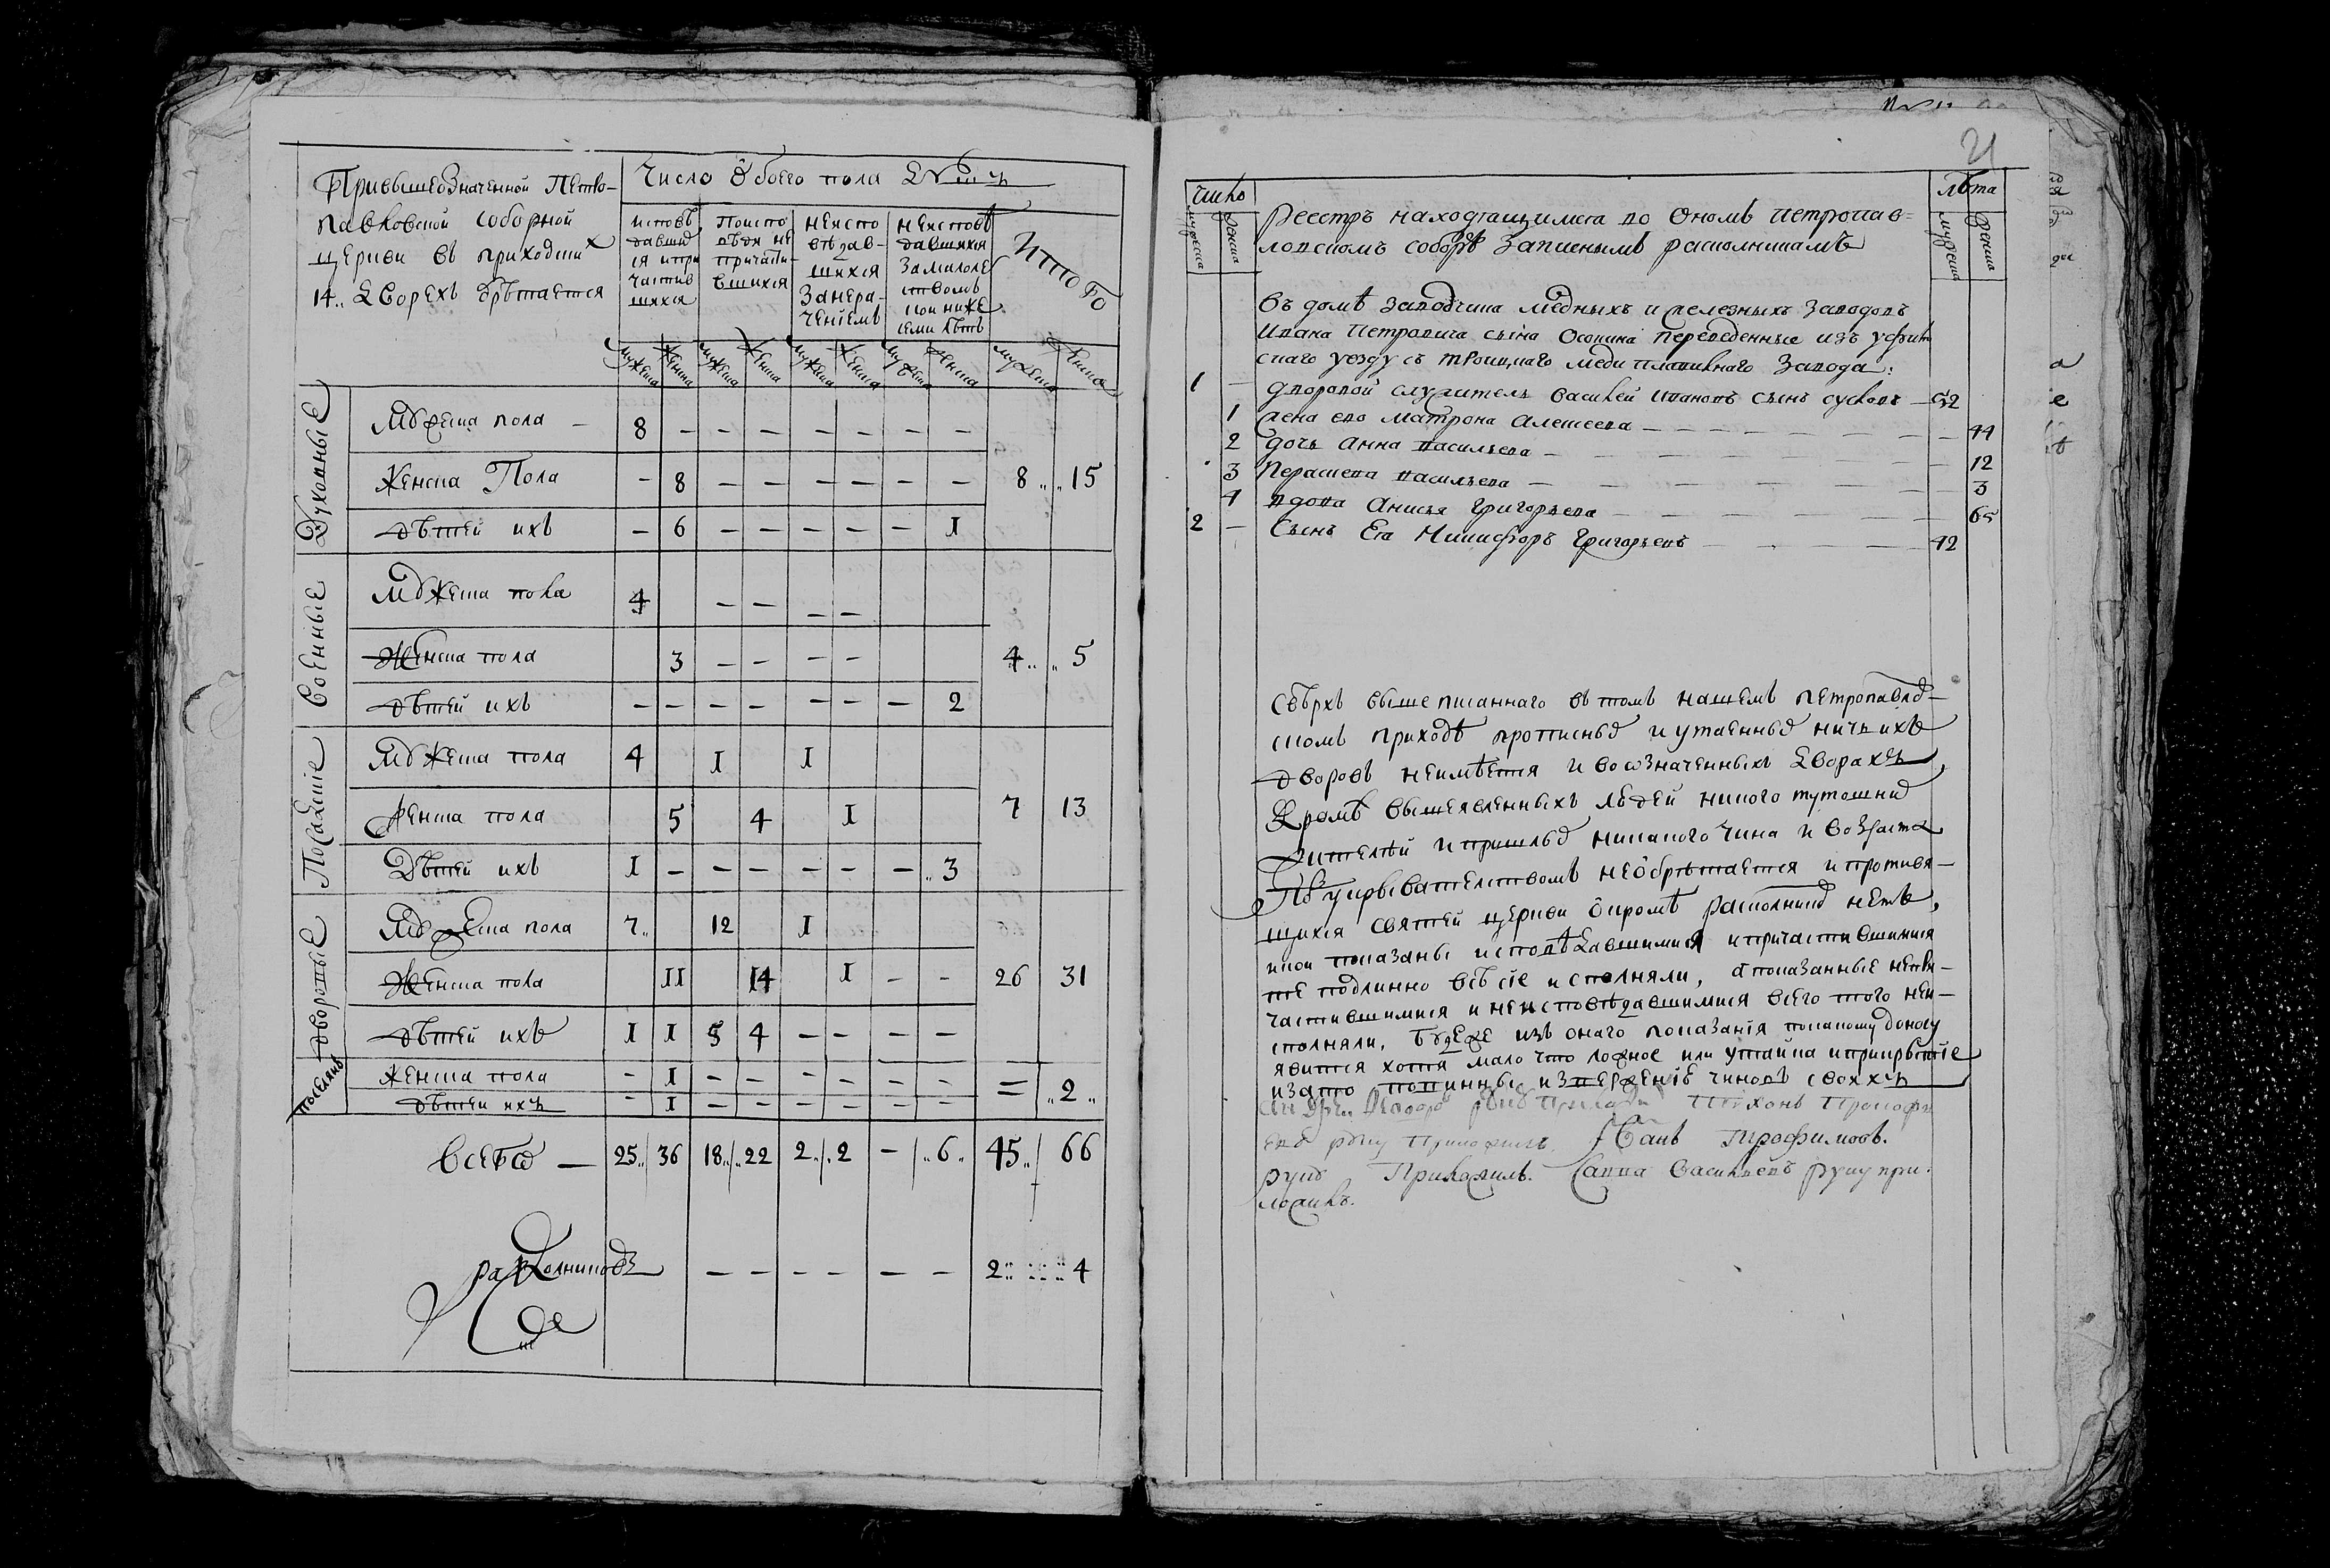 При вышеозначенной Петро-
павловской соборной
церкви въ приходски х
14.. дворехъ обрѣтается
Число обоего пола душъ
исповѣ
давши
ся и при
частив
шихся
по испо
вѣди не
причасти-
вшихся
неиспо
вѣдав-
шихся
за нера-
ченіемъ
неисповѣ
давшихся
за малолѣ
тствомъ
кои ниже
семи лѣтъ
Итого
мужеска женска мужеска женска мужеска женска мужеска женска мужеска женска
Духовные
Мужеска пола – 8 – – – – – – –
Женска Пола – 8 – – – – – – 8 „ „ 15
дѣтей ихъ – 6 – – – – – 1
Военные
Мужеска пола 4 – – – –
Женска пола 3 – – – – 4 „ „ 5
дѣтей ихъ – – – – – – – 2
Посацкіе
Мужеска пола 4 1 1
Женска пола 5 4 1 7 13
Дѣтей ихъ 1 – – – – – – „ 3
Дворовые
Мужеска пола 7 „ 12 1
Женска пола 11 14 1 – – 26 31
дѣтей ихъ 1 1 5 4 – – – –
поселянъ
женска пола – 1 – – – – – –
дѣтей ихъ – 1 – – – – – – = „ 2 „
Всего — 25 „ 36 18 „ „ 22 2 „ „ 2 – „ 6 „ 45 „ 66
раскольниковъ – – – – – – 2 „ „ 4
21
число
мужеска женска
лѣта
мужеска женска
Реестръ находящимся во ономъ петропав=
ловскомъ соборѣ записнымъ раскольникамъ
Въ домѣ заводчика медныхъ и железныхъ заводовъ
Ивана Петровича сына Осокина переведенные изъ уфим
скаго уезду съ троицкаго меди плавилнаго завода:
1 – дворовой служитель Василей Ивановъ сынъ сусловъ – 52
1 жена его Матрона Алексеева – – – 44
2 дочь Анна Васильева – – – 12
3 Парасковья васильева – – – 3
4 вдова Анисья Григорьева – – – 65
2 – Сынъ Ея Никифоръ Григорьевъ – – – 42
Сверхъ вышеписаннаго въ томъ нашемъ петропавло-
скомъ приходѣ прописныхъ и утаенныхъ ничьихъ
дворовъ неимѣется и во означенныхъ дворахъ,
Кромѣ вышеявленныхъ людей никого тутошнихъ
жителей и пришлыхъ никакого чина и возраста
съ укрывателствомъ необрѣтается и противя-
щихся святей церкви окромѣ раскольниковъ нетъ,
и кои показаны исповѣдавшимися и причастившимися
те подлинно всѣ сіе исполняли, а показанные непри-
частившимися и неисповѣдавшимися всего того неи-
сполняли, буде же изъ онаго показанія по какому доносу
явится хотя мало что ложное или утайка и прикрытіе
и за то повинны изверженіѣ чиновъ своихъ
Тихонъ Прокофи
евъ руку приложилъ. Иванъ Трофимовъ.
руку Приложилъ. Савва Васильевъ руку при-
ложилъ.